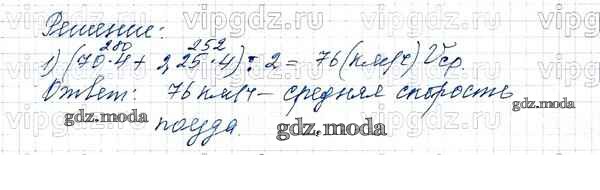 vipgdz.ru vipgdz.ru vipgdz.ru
Решение:
280 252
1) (70·4 + 25·4) : 2 = 76 (км/ч) Vср.
Ответ: 76 км/ч – средняя скорость
gdz.moda gdz.moda
поезда.
gdz.moda